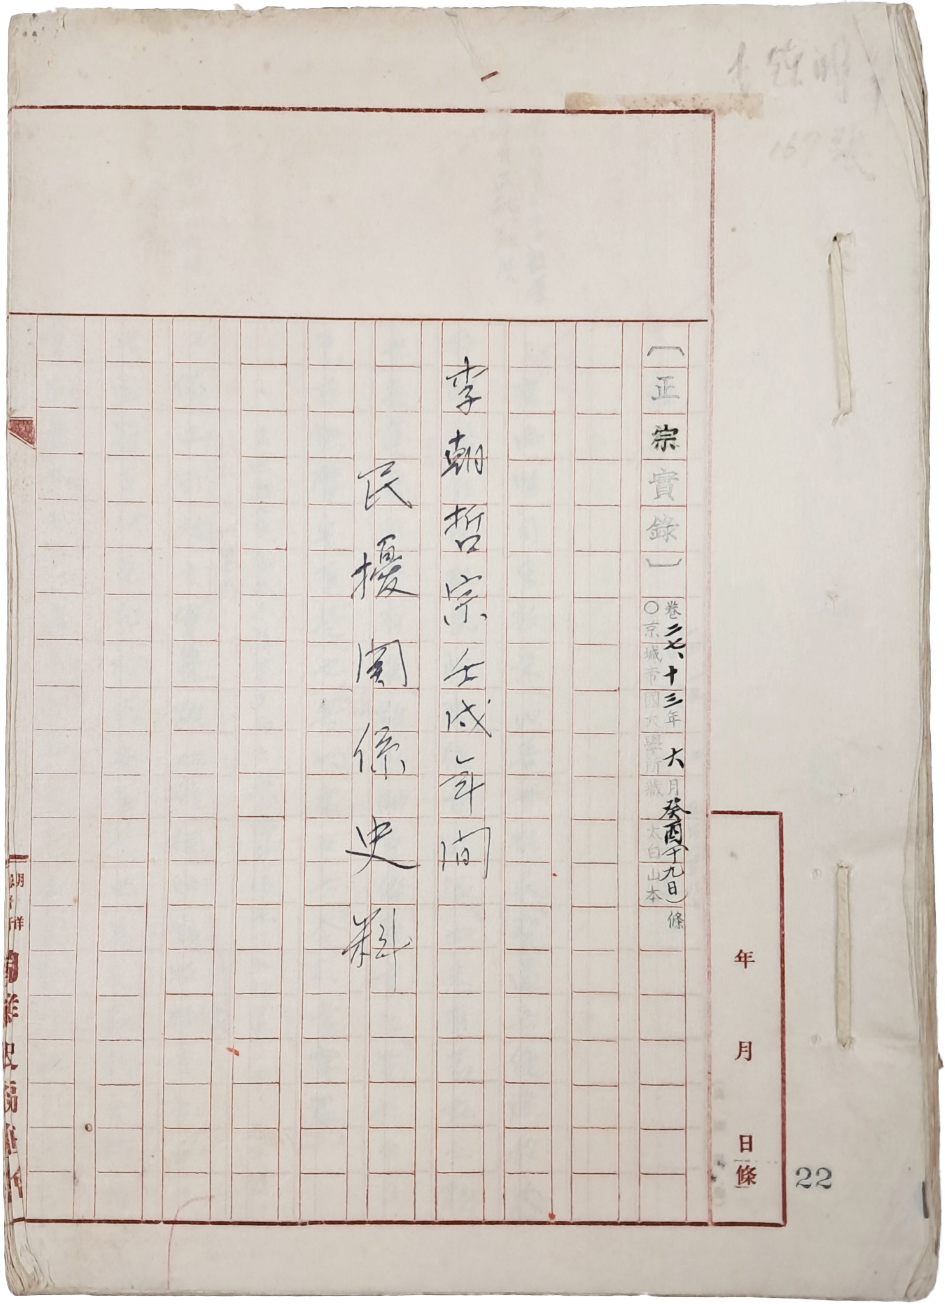 〔正宗實錄〕
卷二七、十三年 六月癸酉(十九日)條
○京城帝國大學所藏 太白山本
李朝哲宗壬戌年间
民擾関係史料
年 月 日條
22
167號